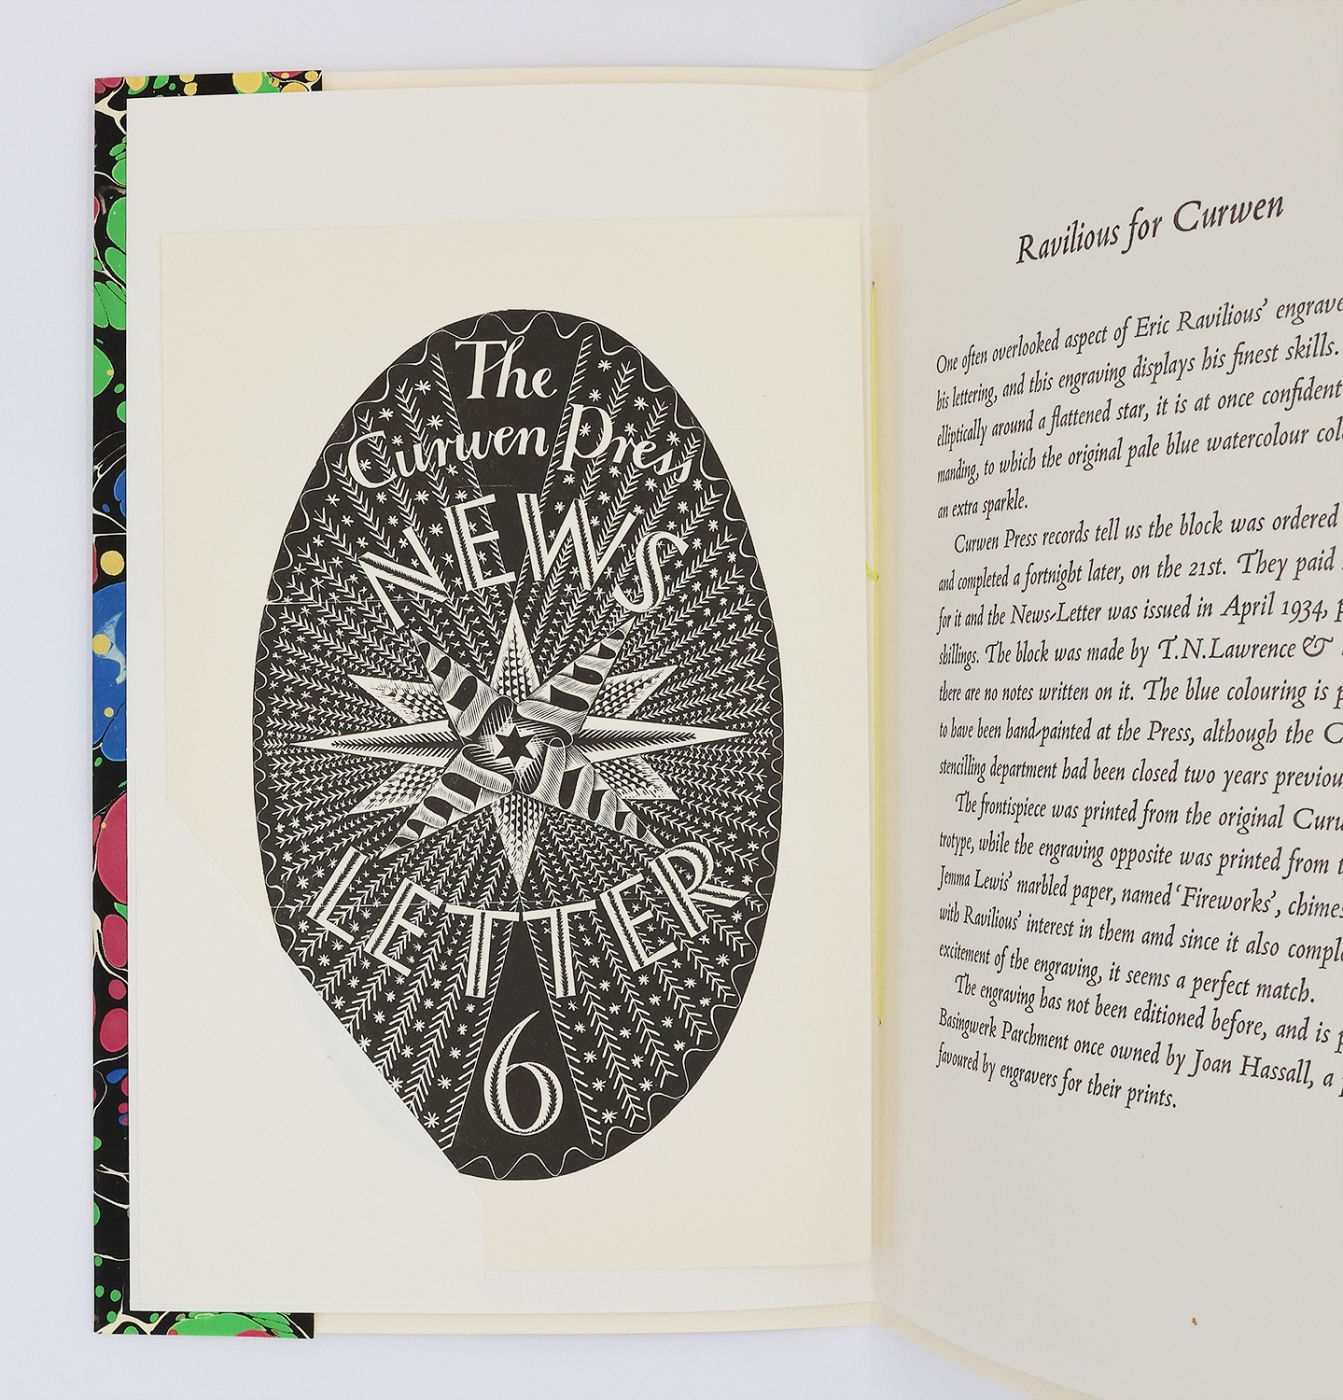 The
Curwen Press
NEWS
LETTER
6
Ravilious for Curwen
One often overlooked aspect of Eric Ravilious' engrave
his lettering, and this engraving displays his finest skills.
elliptically around a flattened star, it is at once confident
manding, to which the original pale blue watercolour col
an extra sparkle.
Curwen Press records tell us the block was ordered
and completed a fortnight later, on the 21st. They paid
for it and the News-Letter was issued in April 1934, p
shillings. The block was made by T.N.Lawrence &
there are no notes written on it. The blue colouring is p
to have been hand-painted at the Press, although the C
stencilling department had been closed two years previou
The frontispiece was printed from the original Curw
trotype, while the engraving opposite was printed from t
Jemma Lewis' marbled paper, named 'Fireworks', chimes
with Ravilious' interest in them amd since it also compl
excitement of the engraving, it seems a perfect match.
The engraving has not been editioned before, and is p
Basingwerk Parchment once owned by Joan Hassall, a
favoured by engravers for their prints.